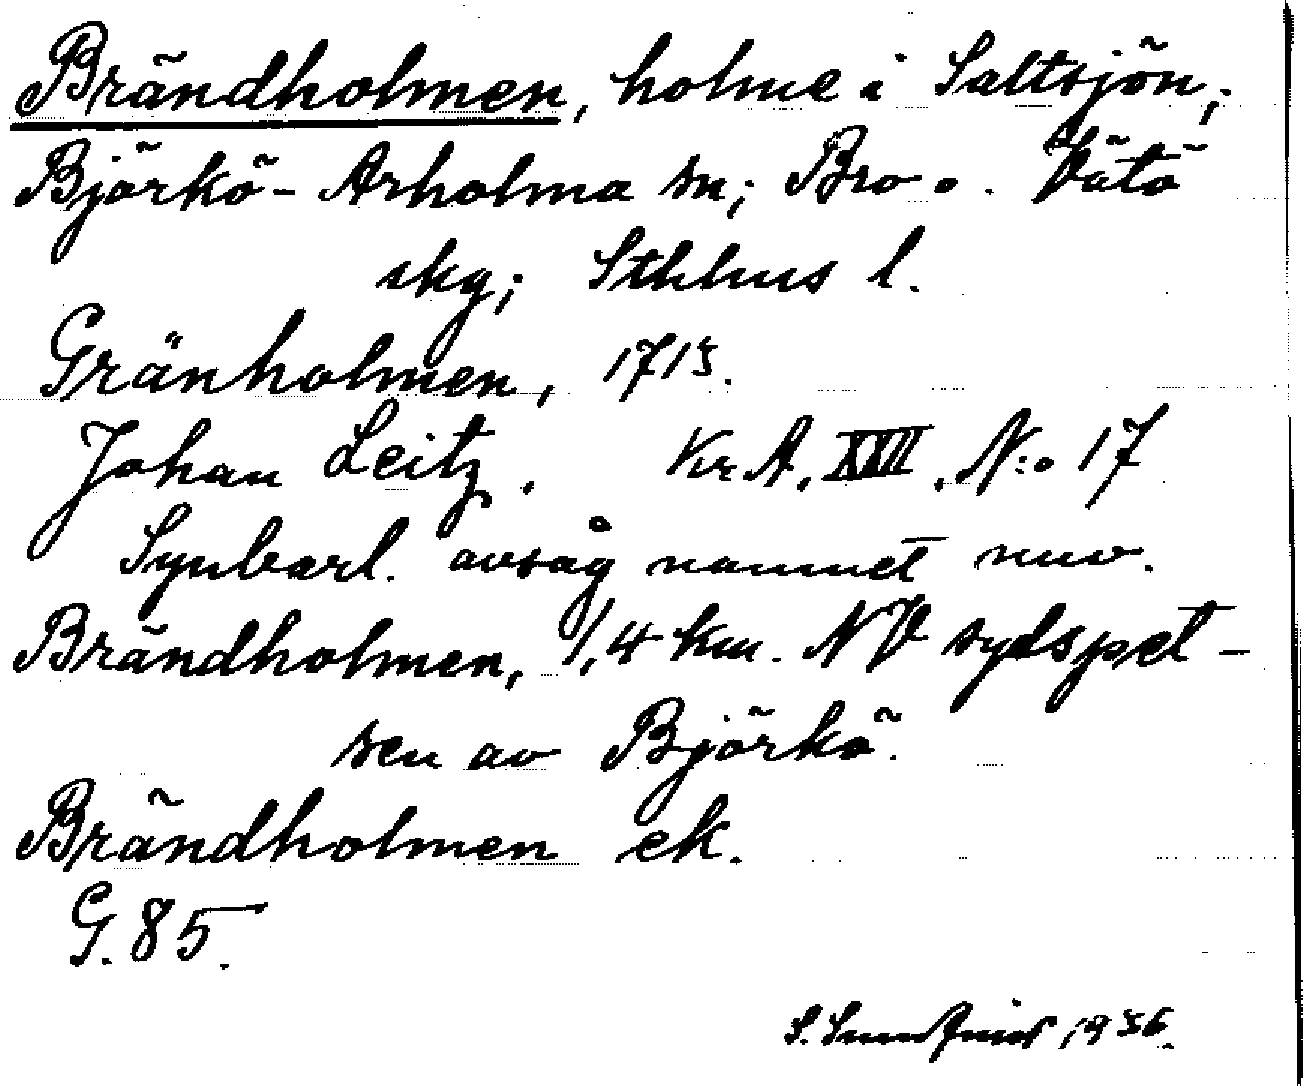 Brändholmen, holme i Saltsjön,
Björkö-Arholma sn; Bro o. Vätö
skg; Sthlms l.
Gränholmen, 1713.
Johan Leitz. Kr.A. XVII. N:o 17
Synbarl. avsåg namnet nuv.
Brändholmen, 1,4 km. NV sydspet-
sen av Björkö.
Brändholmen ek.
G. 85.
S. 1936.